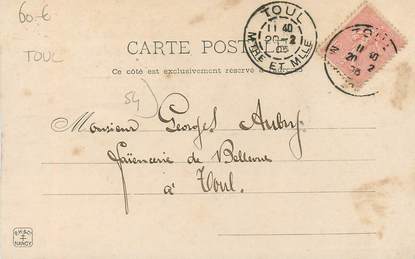 60.€
TOUL
CARTE POSTALE
Ce côté est exclusivement réservé à
TOUL
11 40
20 - 2
05
MTHE ET MLLE
TOUL
11 40
20 2
05
54)
Monsieur Georges Aubry
faïencerie de Bellevue
à Toul.
NANCY